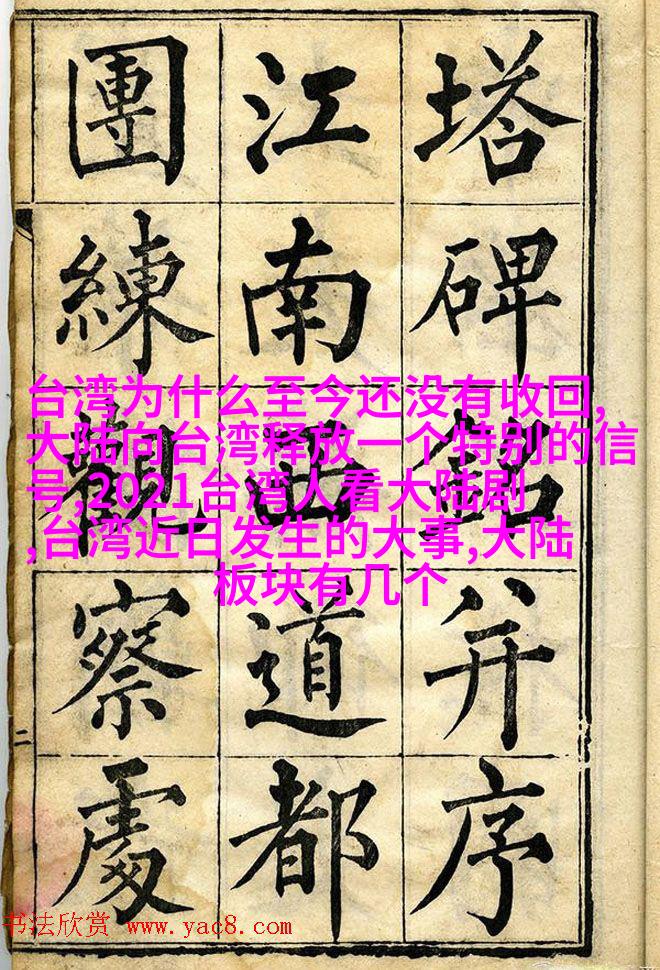 塔碑銘并序
江南西道都
團練觀察處
二
台湾为什么至今还没有收回,
大陆向台湾释放一个特别的信
号,2021台湾人看大陆剧
,台湾近日发生的大事,大陆
板块有几个
书法欣赏 www.yac8.com